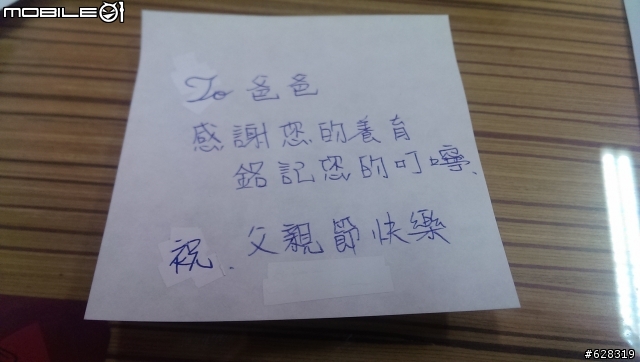 MOBILE01
To 爸爸
感謝您的養育
銘記您的叮嚀.
祝. 父親節快樂
#628319